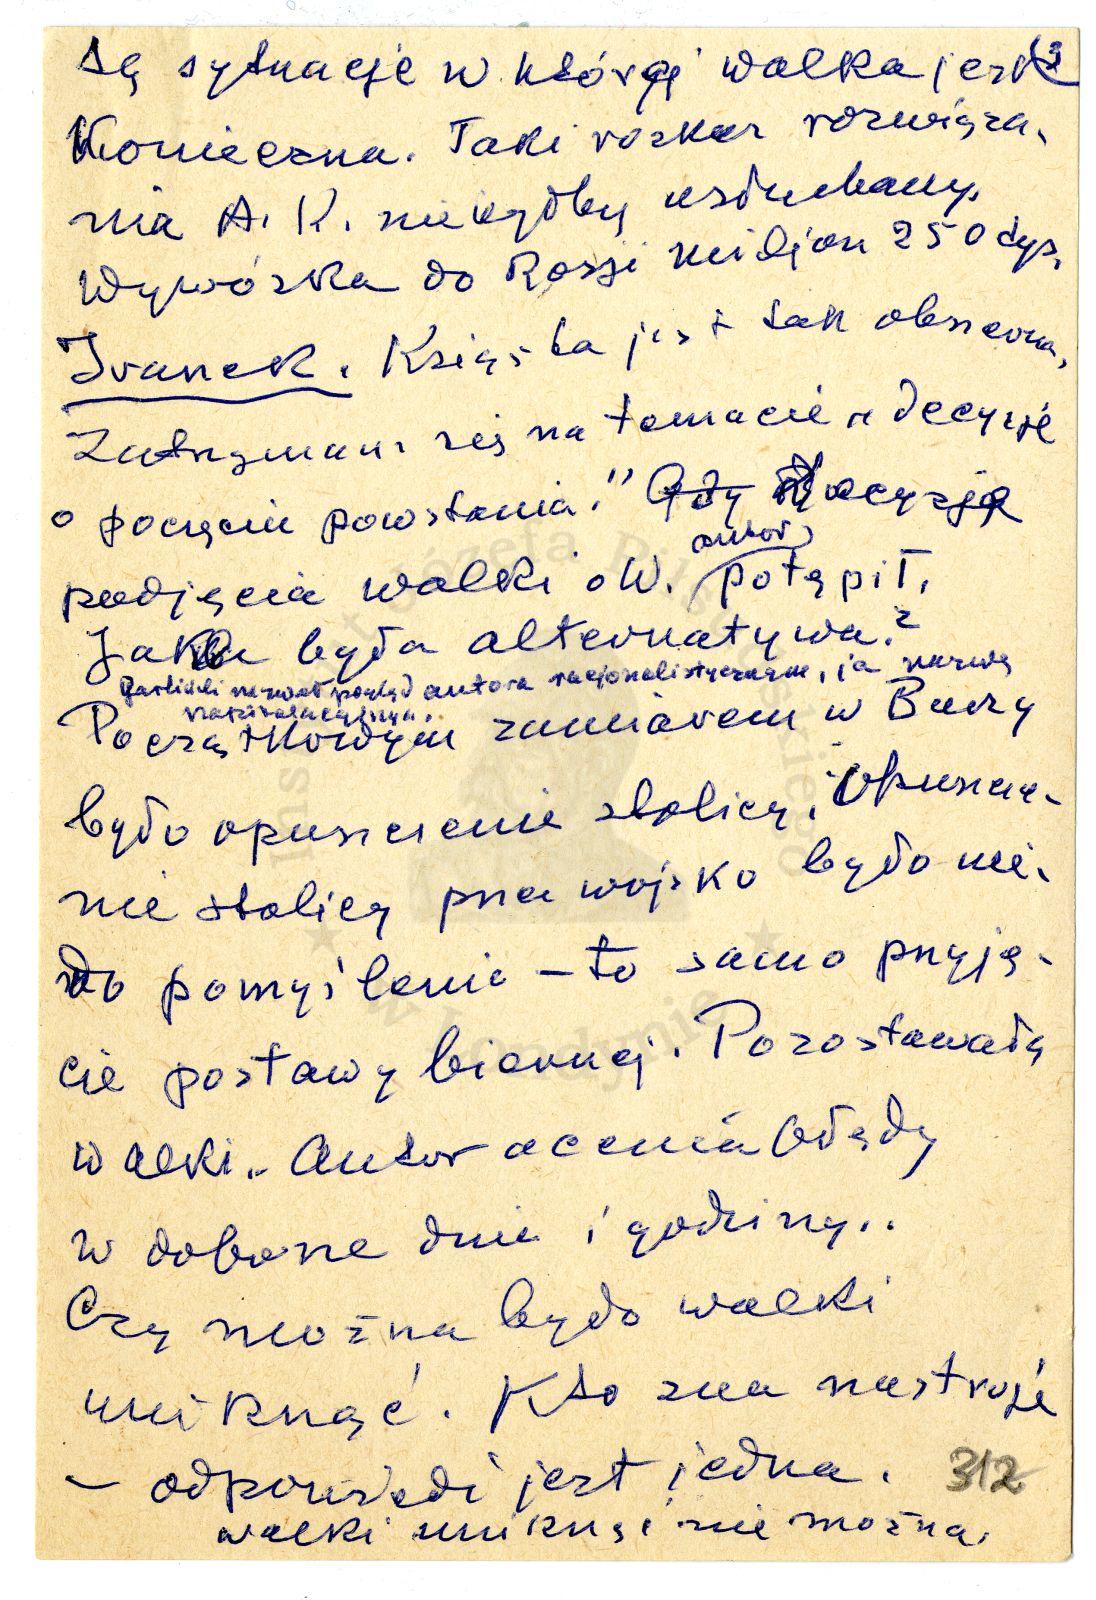 Są sytuacje w której walka jest 3
Konieczna. Taki rozkaz rozwiąza-
nia A. K. nie byłby usłuchany.
Wywózka do Rosji miljon 250 tys.
Iranek. Książka jest tak obszerna,
Zatrzymam się na temacie „Decyzje
o poczęciu powstania." Gdy decyzję
autor
podjęcia walki o W. potępił.
Jaka była alternatywa?
nazwał pogląd autora racjonalistycznym, ja nazwę
Początkowym zamiarem w Burzy
było opuszczenie stolicy. Opuszcze-
nie stolicy prze wojsko było nie.
do pomyślenie – to samo przyję-
cie postawy biernej. Pozostawały
walki. Autor ocenia błędy
w doborze dnia i godziny..
Czy można było walki
uniknąć. Kto zna nastroje
– odpowiedź jest jedna. 312
walki uniknąć nie można.
Instytut Józefa Piłsudskiego
w Londynie